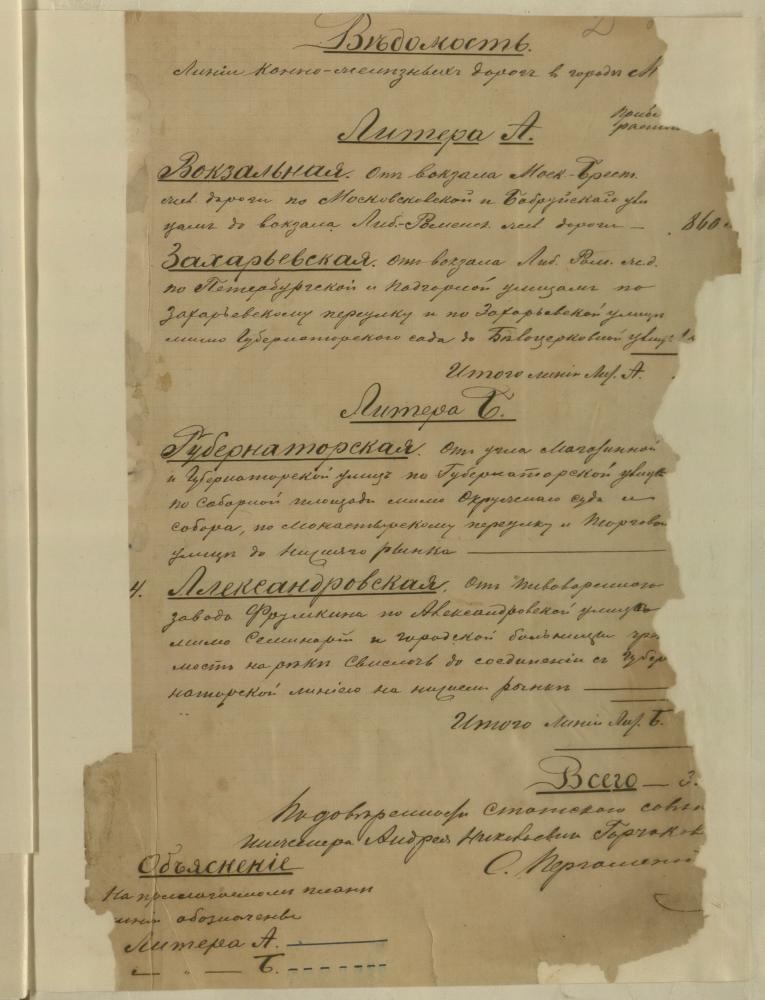 Вѣдомость.
Линіи конно-желѣзныхъ дорогъ в городѣ М
Литера А.
Вокзальная. Отъ вокзала Моск-Брест.
жел дороги по Московсковской и Бобруйской ули
цамъ до вокзала Либ.-Роменск жел дороги — 860
Захарьевская. Отъ вокзала Либ. Ром. ж.д.
по Петербургской и Подгорной улицамъ по
Захарьевскому переулку и по Захарьевской улицѣ
мимо Губернаторскаго сада до Бѣлоцерковной улиц
Итого линіи Лит. А.
Литера Б.
Губернаторская. Отъ угла Магазинной
и Губернаторской улицъ по Губернаторской улицѣ
по Соборной площади мимо Окружнаго суда и
собора, по Монастырскому переулку и Торговой
улицѣ до Низшаго рынка
4. Александровская. Отъ пивовареннаго
завода Фрумкина по Александровской улицѣ
мимо Семинаріи и городской больницы чрез
мостъ на рѣкѣ Свислочъ до соединенія съ Губер
наторской линіею на низшем рынкѣ
Итого линіи Лит. Б.
Всего — 3.
По довѣренности Статскаго совѣт
инженера Андрея Горчаков
С. Пергаменш
Объясненіе
На прилагаемомъ планѣ
линіи обозначены
Литера А.
— " — Б.